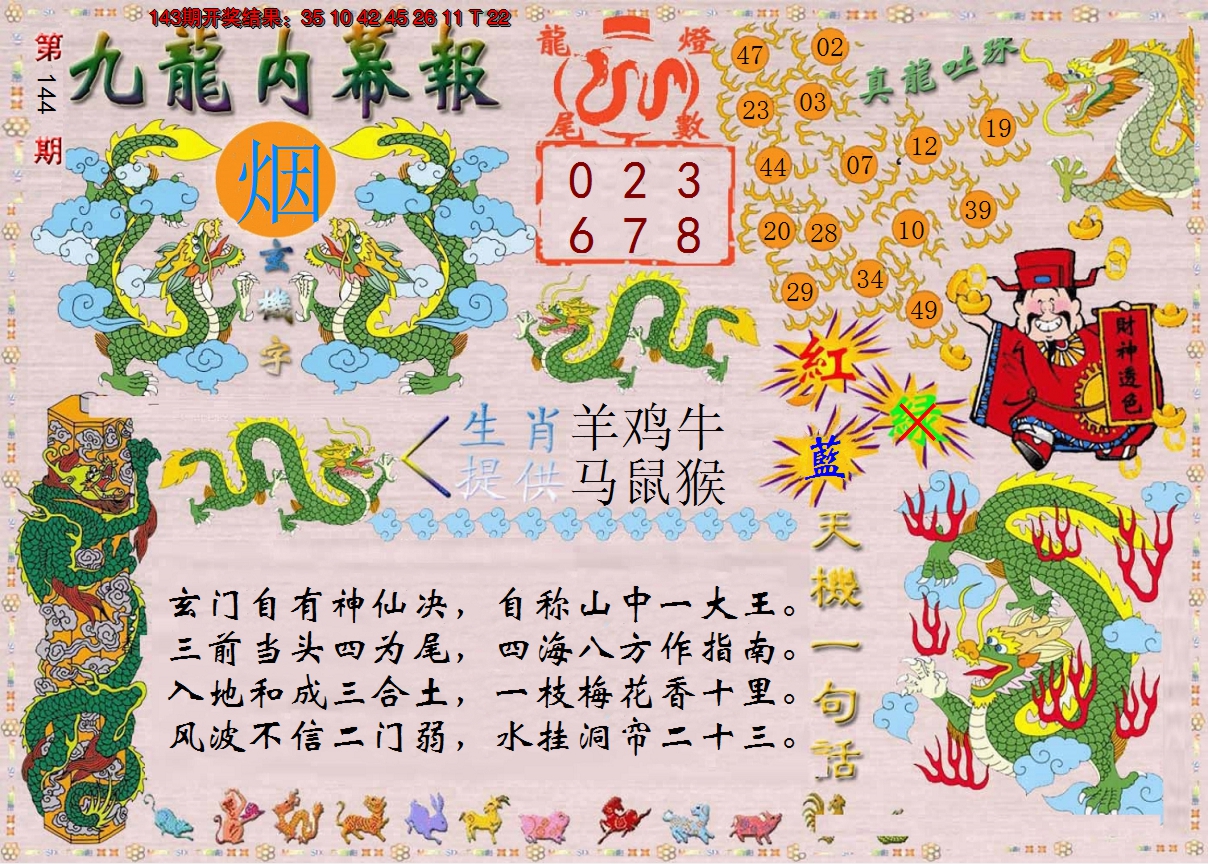 143期开奖结果：35 10 42 45 26 11 T 22
第144期
九龍内幕報
烟
玄機字
龍燈
尾數
0 2 3
6 7 8
真龍吐珠
47
02
23
03
12
19
44
07
39
20
28
10
34
29
49
財神透色
紅
绿
藍
生肖 羊鸡牛
提供 马鼠猴
天機一句话
玄门自有神仙决，自称山中一大王。
三前当头四为尾，四海八方作指南。
入地和成三合土，一枝梅花香十里。
风波不信二门弱，水挂洞帘二十三。